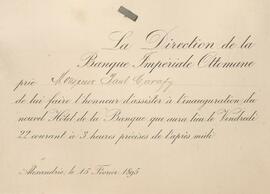 La Direction de la
Banque Impériale Ottomane
prie Monsieur Paul Cavafy
de lui faire l'honneur d'assister à l'inauguration du
nouvel Hôtel de la Banque qui aura lieu le Vendredi
22 courant à 3 heures précises de l'après midi
Alexandrie, le 15 Février 1895